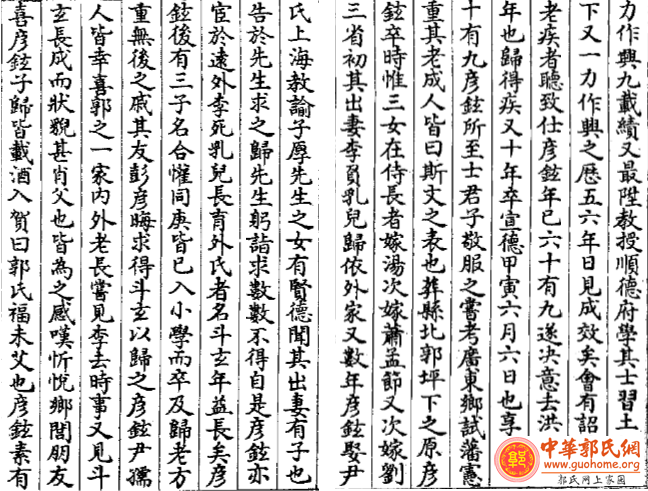 力作興九載績又最陞教授順德府學其士習土
下又一力作興之厯五六年日見成效矣會有詔
老疾者聽致仕彦鉉年已六十有九遂决意去洪
年也歸得疾又十年卒宣德甲寅六月六日也享
十有九彦鉉所至士君子敬服之嘗考廣東鄉試藩憲
重其老成人皆曰斯文之表也葬縣北郭坪下之原彦
鉉卒時惟三女在侍長者嫁湯次嫁蕭孟節又次嫁劉
三省初其出妻李負乳兒歸依外家又數年彦鉉娶尹
氏上海教諭子厚先生之女有賢德聞其出妻有子也
告於先生求之歸先生躬詣求數數不得自是彦鉉亦
宦於遠外李死乳兒長育外氏者名斗玄年益長矣彦
鉉後有三子名合惟同庚皆已入小學而卒及歸老方
重無後之戚其友彭彦晦求得斗玄以歸之彦鉉尹孺
人皆幸喜郭之一家内外老長嘗見李去時事又見斗
玄長成而狀貌甚肖父也皆為之感嘆忻悦鄉閭朋友
喜彦鉉子歸皆載酒入賀曰郭氏福未父也彦鉉素有
中華郭氏網
www.guohome.org
郭氏网上家园